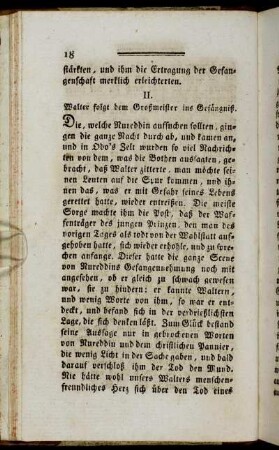 18
stärkten, und ihm die Ertragung der Gefan-
genschaft merklich erleichterten.
II.
Walter folgt dem Großmeister ins Gefängniß.
Die, welche Nureddin aufsuchen sollten, gin-
gen die ganze Nacht durch ab, und kamen an,
und in Odo's Zelt wurden so viel Nachrich-
ten von dem, was die Bothen aussagten, ge-
bracht, daß Walter zitterte, man möchte sei-
nen Leuten auf die Spur kommen, und ih-
nen das, was er mit Gefahr seines Lebens
gerettet hatte, wieder entreißen. Die meiste
Sorge machte ihm die Post, daß der Waf-
fenträger des jungen Prinzen, den man des
vorigen Tages als todt von der Wahlstatt auf-
gehoben hatte, sich wieder erhohle, und zu spre-
chen anfange. Dieser hatte die ganze Scene
von Nureddins Gefangennehmung noch mit
angesehen, ob er gleich zu schwach gewesen
war, sie zu hindern; er kannte Waltern,
und wenig Worte von ihm, so war er ent-
deckt, und befand sich in der verdrießlichsten
Lage, die sich denken läßt. Zum Glück bestand
seine Aussage nur in gebrochenen Worten
von Nureddin und dem christlichen Pannier,
die wenig Licht in der Sache gaben, und bald
darauf verschloß ihm der Tod den Mund.
Nie hätte wohl unsers Walters menschen-
freundliches Herz sich über den Tod eines